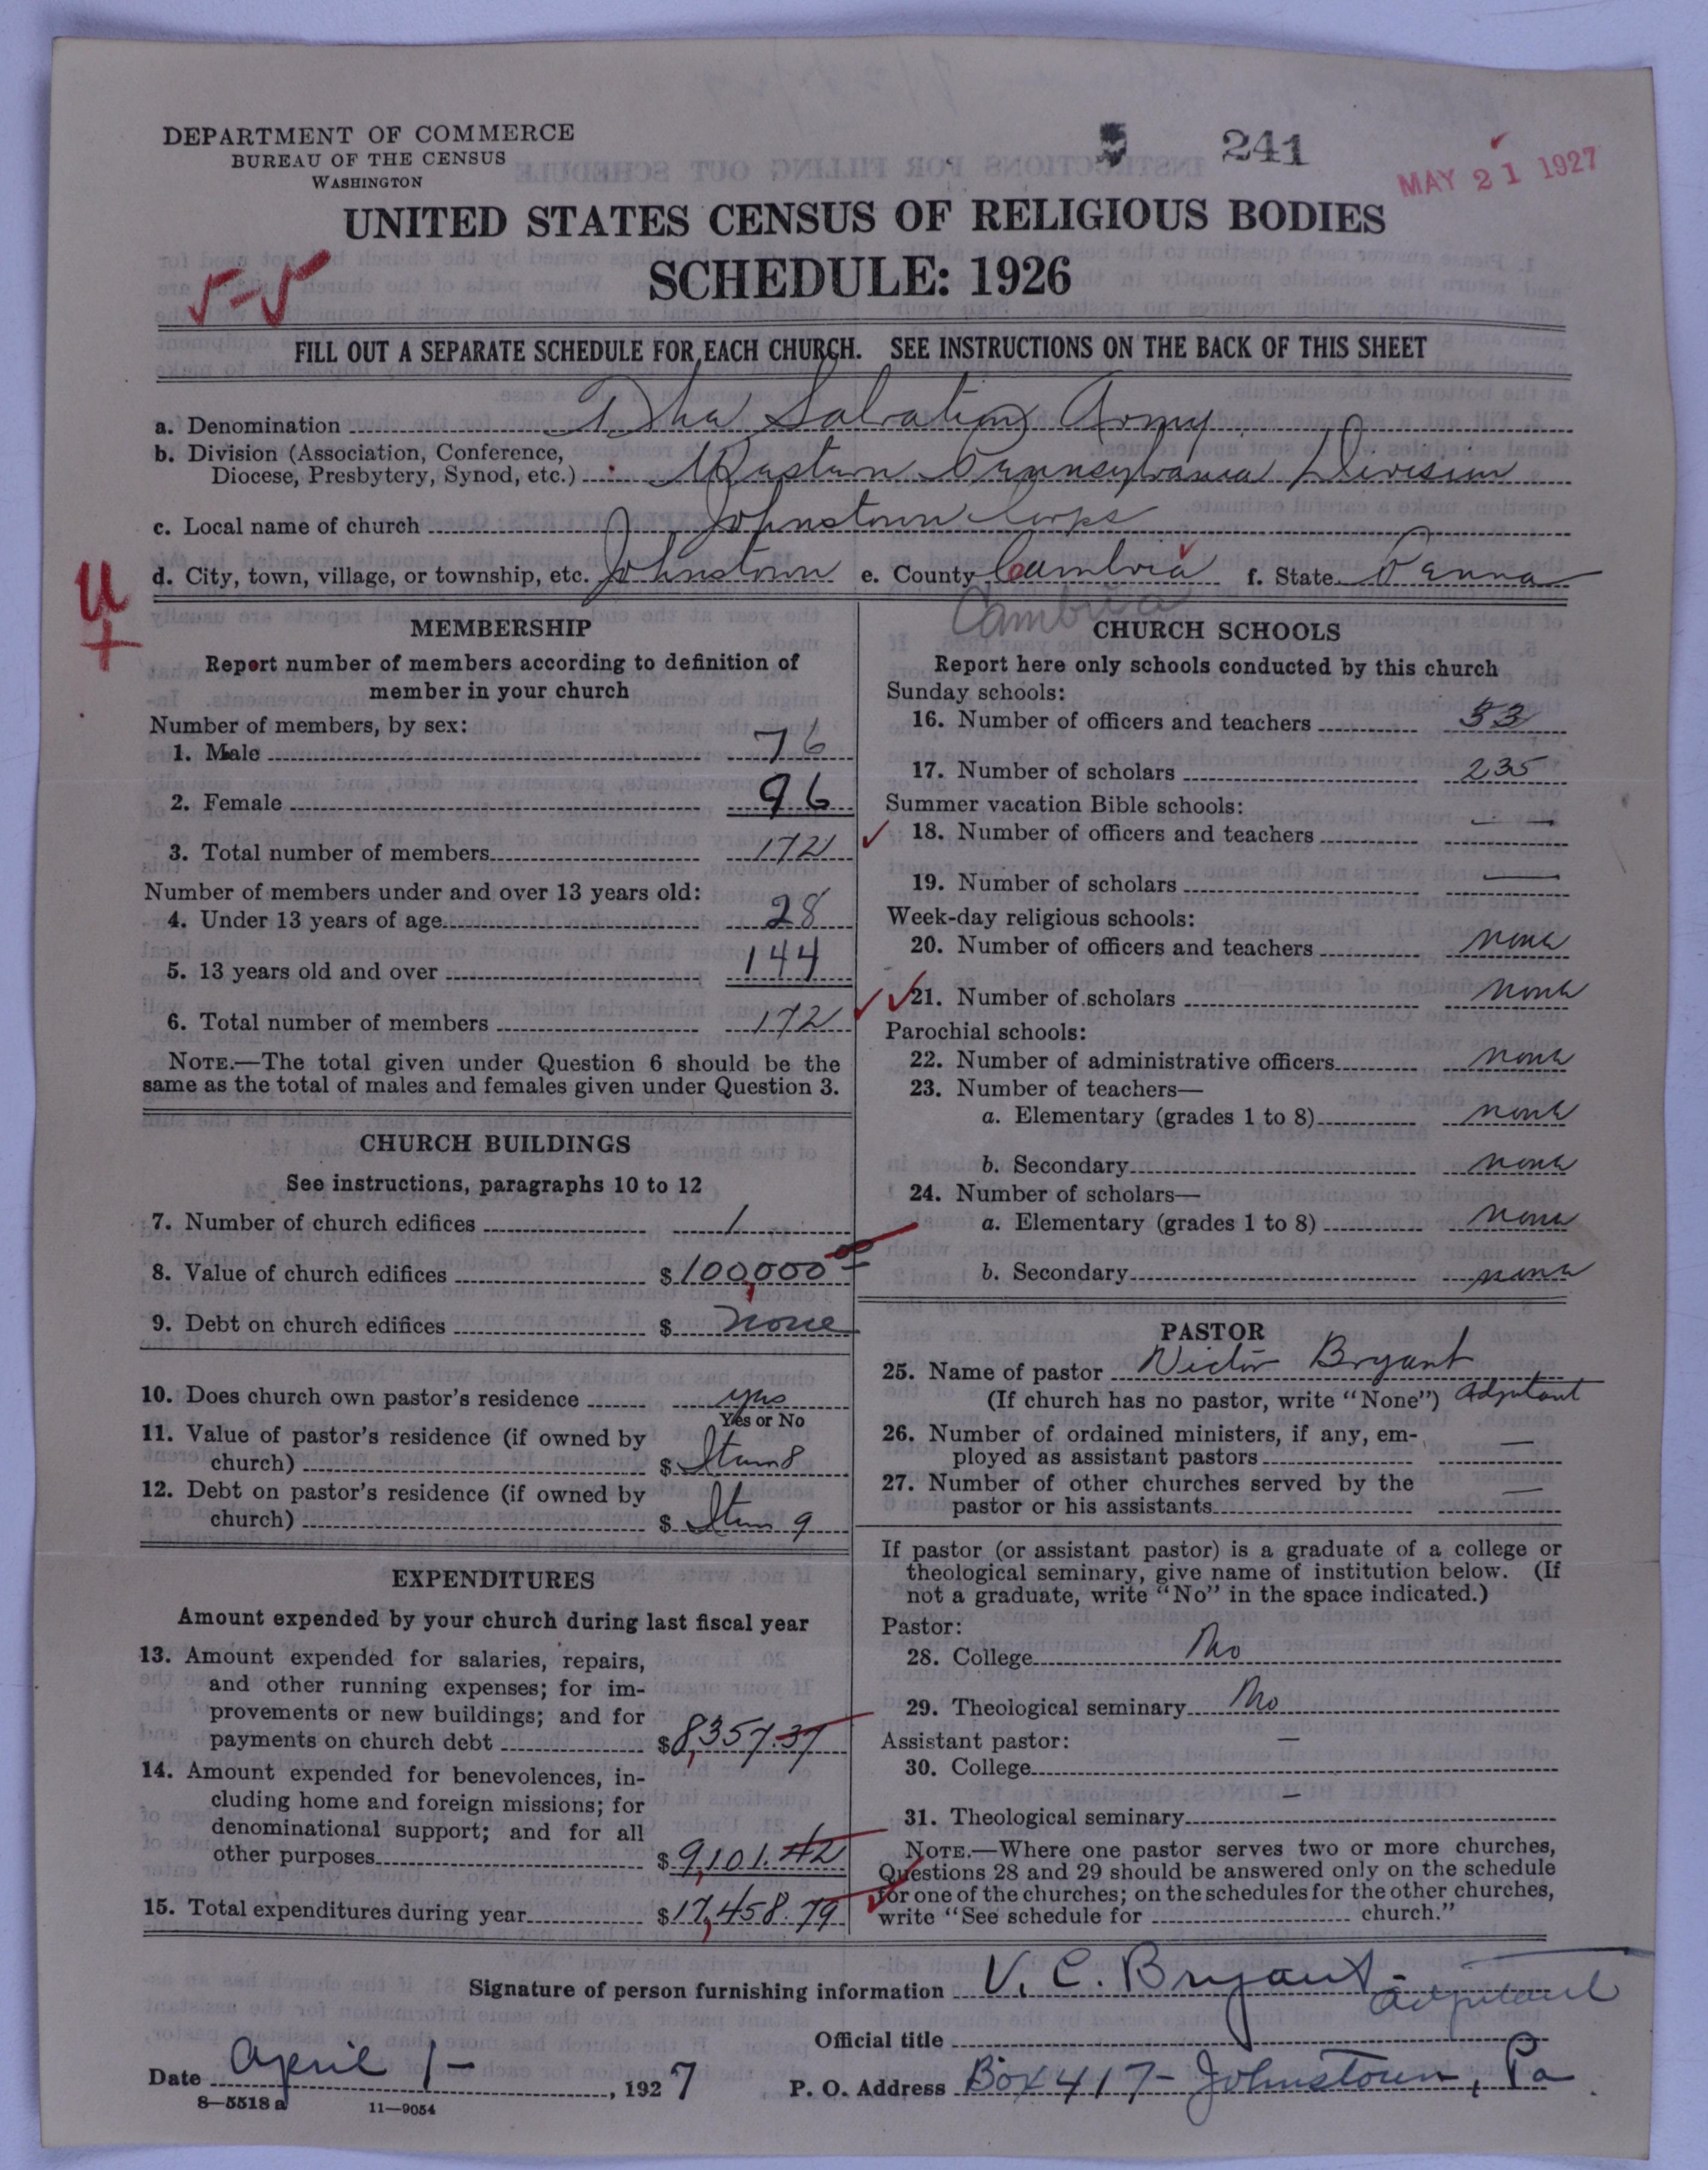 DEPARTMENT OF COMMERCE
BUREAU OF THE CENSUS
WASHINGTON
241
MAY 21 1927
UNITED STATES CENSUS OF RELIGIOUS BODIES
SCHEDULE: 1926
FILL OUT A SEPARATE SCHEDULE FOR EACH CHURCH. SEE INSTRUCTIONS ON THE BACK OF THIS SHEET
a. Denomination The Salvation Army
b. Division (Association, Conference,
Diocese, Presbytery, Synod, etc.) Western Pennsylvania Division
c. Local name of church Johnstown Corps
d. City, town, village, or township, etc. Johnstown e. County Cambria f. State Penna
Cambria
U
+
MEMBERSHIP
Report number of members according to definition of
member in your church
Number of members, by sex:
1. Male 76
2. Female 96
3. Total number of members 172
Number of members under and over 13 years old:
4. Under 13 years of age 28
5. 13 years old and over 144
6. Total number of members 172
NOTE.—The total given under Question 6 should be the
same as the total of males and females given under Question 3.
CHURCH BUILDINGS
See instructions, paragraphs 10 to 12
7. Number of church edifices 1
8. Value of church edifices $100,000 00
9. Debt on church edifices $ none
10. Does church own pastor's residence yes
Yes or No
11. Value of pastor's residence (if owned by
church) $ Item 8
12. Debt on pastor's residence (if owned by
church) $ Item 9
EXPENDITURES
Amount expended by your church during last fiscal year
13. Amount expended for salaries, repairs,
and other running expenses; for im-
provements or new buildings; and for
payments on church debt $8,357.37
14. Amount expended for benevolences, in-
cluding home and foreign missions; for
denominational support; and for all
other purposes $9,101.42
15. Total expenditures during year $17,458.79
CHURCH SCHOOLS
Report here only schools conducted by this church
Sunday schools:
16. Number of officers and teachers 53
17. Number of scholars 235
Summer vacation Bible schools:
18. Number of officers and teachers — —
19. Number of scholars —
Week-day religious schools:
20. Number of officers and teachers none
21. Number of scholars none
Parochial schools:
22. Number of administrative officers none
23. Number of teachers—
a. Elementary (grades 1 to 8) none
b. Secondary none
24. Number of scholars—
a. Elementary (grades 1 to 8) none
b. Secondary none
PASTOR
25. Name of pastor Victor Bryant
(If church has no pastor, write "None") Adjutant
26. Number of ordained ministers, if any, em-
ployed as assistant pastors —
27. Number of other churches served by the
pastor or his assistants —
If pastor (or assistant pastor) is a graduate of a college or
theological seminary, give name of institution below. (If
not a graduate, write "No" in the space indicated.)
Pastor:
28. College No
29. Theological seminary No
Assistant pastor:
30. College —
31. Theological seminary —
NOTE.—Where one pastor serves two or more churches,
Questions 28 and 29 should be answered only on the schedule
for one of the churches; on the schedules for the other churches,
write "See schedule for church."
Signature of person furnishing information V. C. Bryant - Adjutant
Official title
Date April 1 - , 1927 P. O. Address Box 417 - Johnstown, Pa.
8—5518 a 11—9054